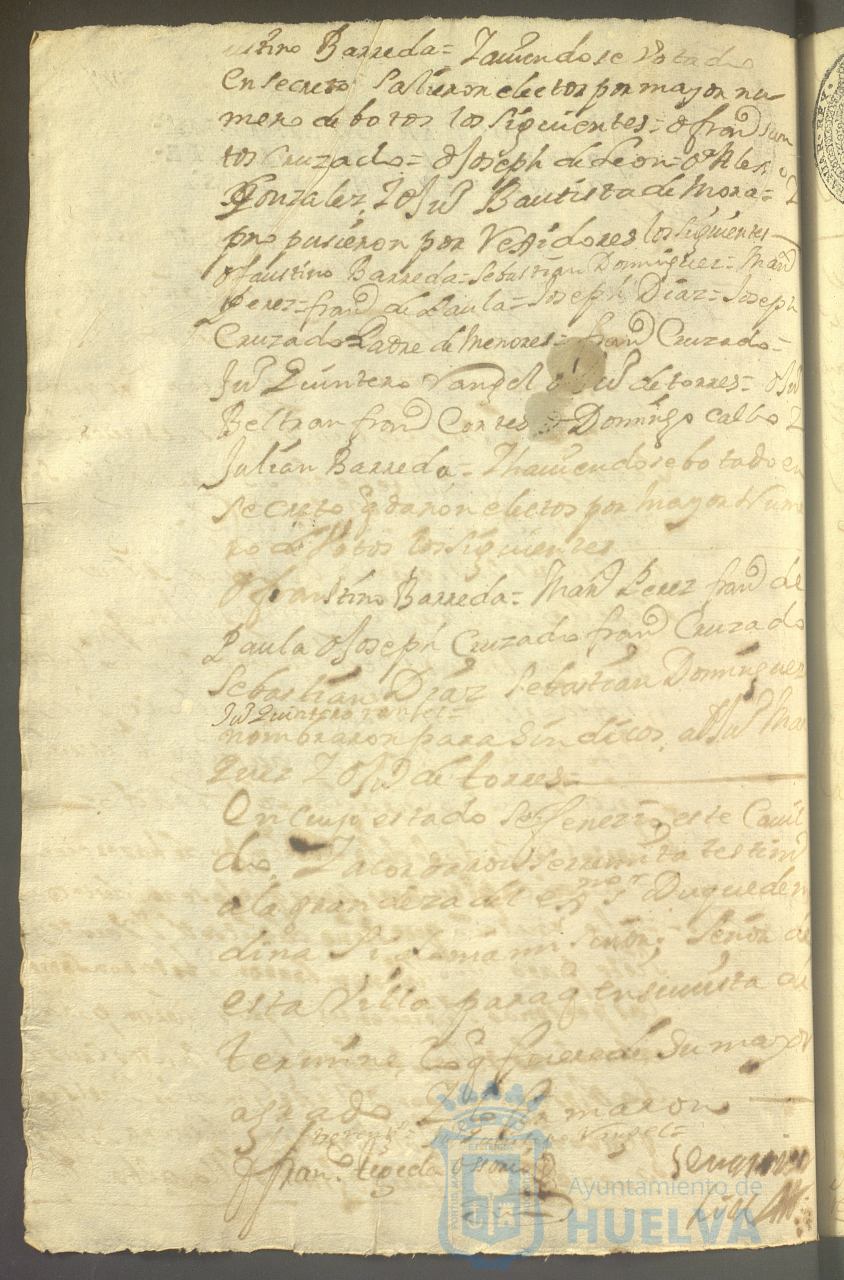 stino Barreda = Zaviendose Votado
En secreto Salieron electos por mayor nu
mero de botos los siguientes = dn franco
tos Cruzado = dn Joseph de Leon = dn Alex
Gonzalez, Z dn Ju Bautista de Mora =
propusieron por Rexidores los siguientes
dn faustino Barreda = Sebastian Dominguez = Manl
Perez = franco de Paula = Joseph Diaz = Joseph
Cruzado Padre de Menores = franco Cruzado =
Ju Quintero Vangel dn Ju de torres = dn Ju
Beltran franco Cortes = Domingo calbo Z
Julian Barreda = Zhaviendose botado en
secreto qdaron electos por mayor Nume
ro de Votos los siguientes
dn faustino Barreda = Manl Perez franco de
Paula dn Joseph Cruzado franco Cruzado
Sebastian Diaz Sebastian Dominguez
Ju Quintero Vangel =
nombraron para Sindicos, a dn Ju Mar
quez Z dn Ju de torres =
En cuyo estado se fenezio este Cavil
do, Zacordaron se rremita testimo
a la grandeza del exmo Sr Duque de m
dina Sidonia mi Señor, Señor de
esta Villa para q en su vista de
termine lo q fuere de su mayor
agrado Z lo firmaron
Ju Quintero Vangel =
franco tejeda osorio
Ayuntamiento de
HUELVA